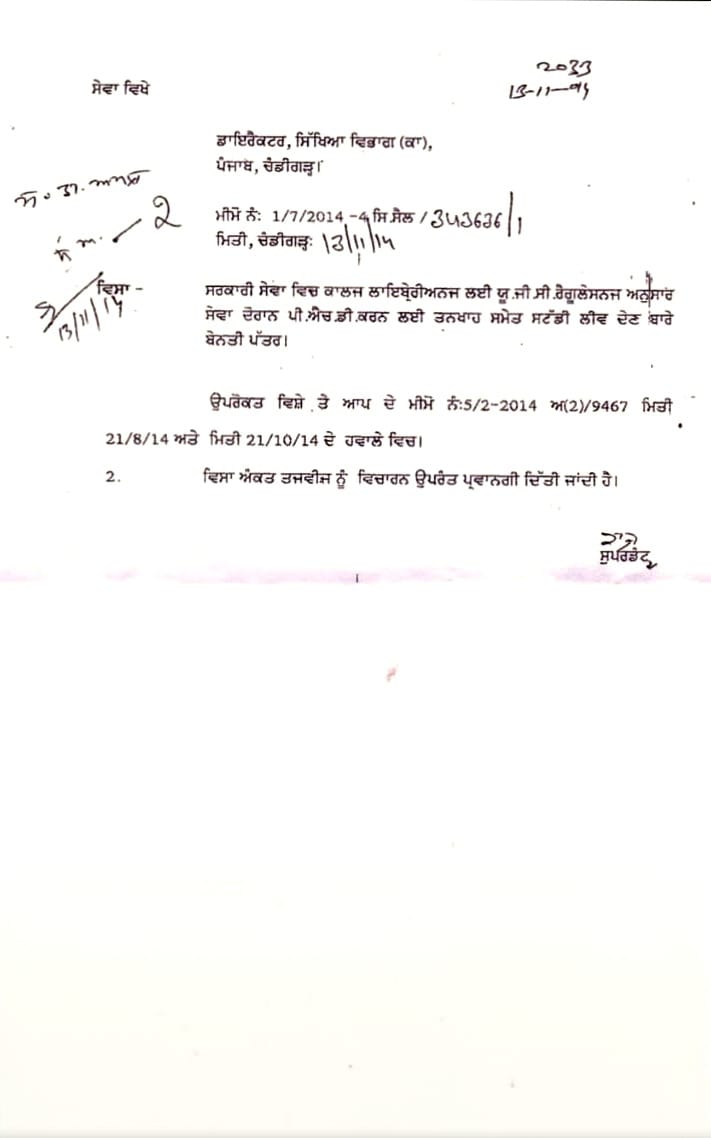 2033
13-11-14
ਸੇਵਾ ਵਿਖੇ
ਡਾਇਰੈਕਟਰ, ਸਿੱਖਿਆ ਵਿਭਾਗ (ਕਾ),
ਪੰਜਾਬ, ਚੰਡੀਗੜ੍ਹ।
2
ਮੀਮੋ ਨੰ: 1/7/2014 -4 ਸਿ.ਸੈਲ / 343636/1
ਮਿਤੀ, ਚੰਡੀਗੜ੍ਹ: 13/11/14
ਵਿਸਾ -
13/11/14
ਸਰਕਾਰੀ ਸੇਵਾ ਵਿਚ ਕਾਲਜ ਲਾਇਬ੍ਰੇਰੀਅਨਜ ਲਈ ਯੂ.ਜੀ.ਸੀ.ਰੈਗੂਲੇਸਨਜ ਅਨੁਸਾਰ
ਸੇਵਾ ਦੌਰਾਨ ਪੀ.ਐਚ.ਡੀ.ਕਰਨ ਲਈ ਤਨਖਾਹ ਸਮੇਤ ਸਟੱਡੀ ਲੀਵ ਦੇਣ ਬਾਰੇ
ਬੇਨਤੀ ਪੱਤਰ।
ਉਪਰੋਕਤ ਵਿਸ਼ੇ ਤੇ ਆਪ ਦੇ ਮੀਮੋ ਨੰ:5/2-2014 ਅ(2)/9467 ਮਿਤੀ
21/8/14 ਅਤੇ ਮਿਤੀ 21/10/14 ਦੇ ਹਵਾਲੇ ਵਿਚ।
2. ਵਿਸਾ ਅੰਕਤ ਤਜਵੀਜ ਨੂੰ ਵਿਚਾਰਨ ਉਪਰੰਤ ਪ੍ਰਵਾਨਗੀ ਦਿੱਤੀ ਜਾਂਦੀ ਹੈ।
ਸੁਪਰਡੰਟ